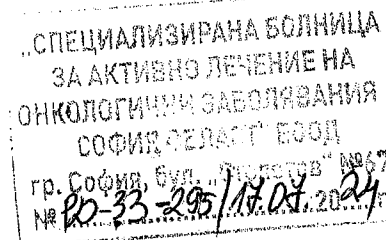 „СПЕЦИАЛИЗИРАНА БОЛНИЦА
ЗА АКТИВНО ЛЕЧЕНИЕ НА
ОНКОЛОГИЧНИ ЗАБОЛЯВАНИЯ
СОФИЯ ОБЛАСТ" ЕООД
гр. София, бул. №67
№ РД-33-295/17.07.2024г